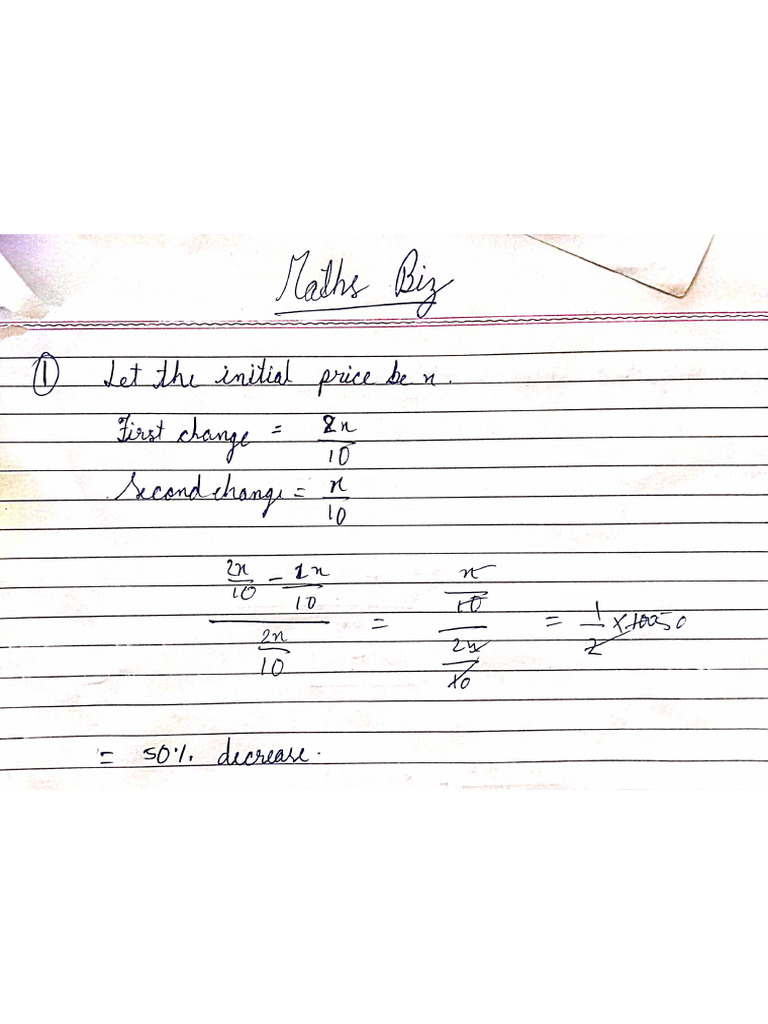 Maths Biz
① Let the initial price be x.
First change = 2x/10
Second change = x/10
(2x/10 - 1x/10) / (2x/10) = (x/10) / (2x/10) = 1/2 × 100 50
= 50% decrease.